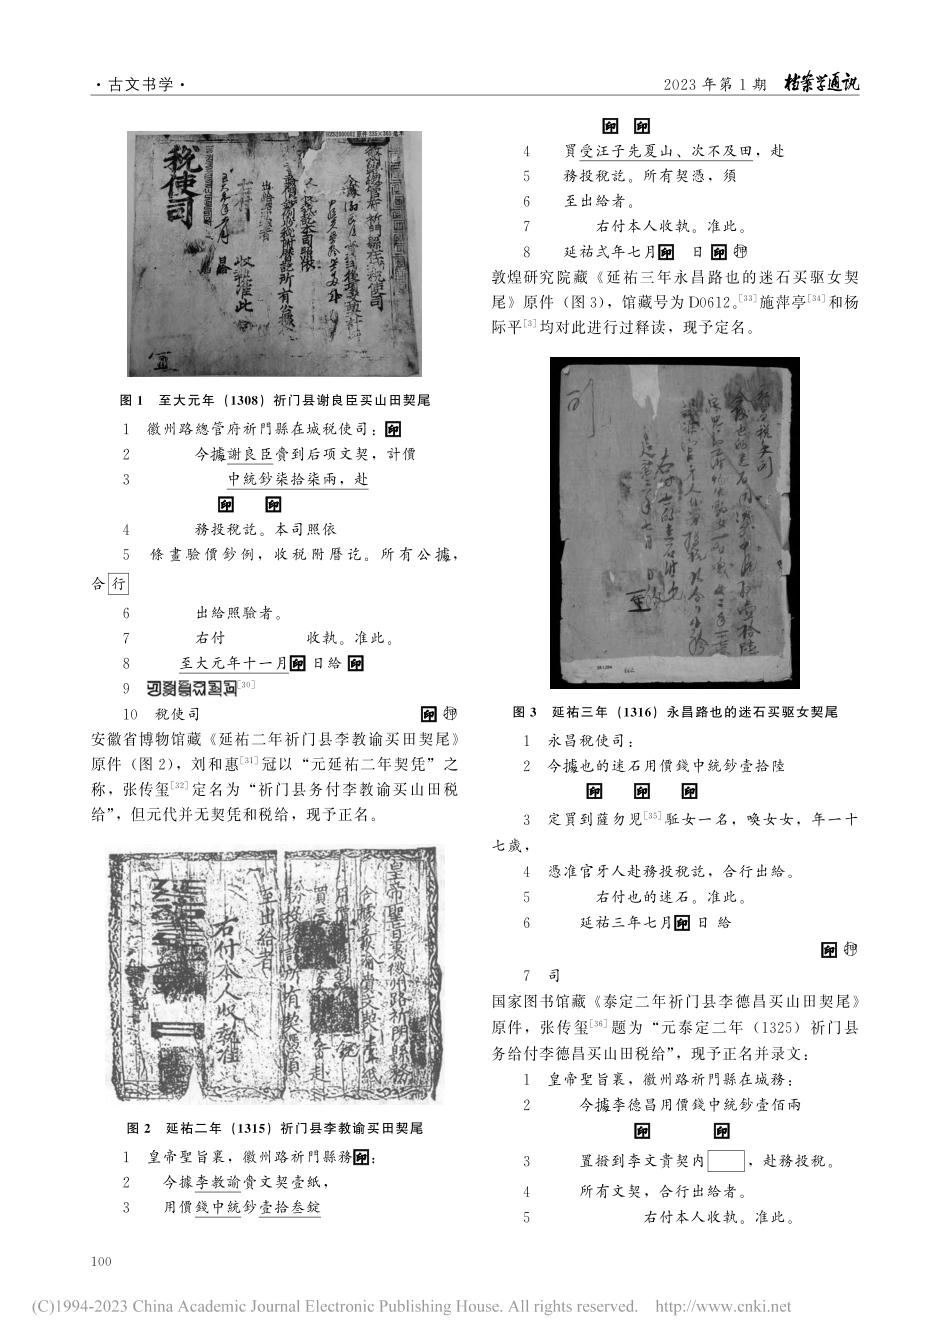 ·古文书学·
2023年第1期 档案学通讯
税使司
图1 至大元年（1308）祈门县谢良臣买山田契尾
1 徽州路總管府祈門縣在城税使司：印
2 今據謝良臣賫到后项文契，計價
3 中統鈔柒拾柒兩，赴
印 印
4 務投稅訖。本司照依
5 條畫驗價鈔例，收税附曆讫。所有公據，
合行
6 出給照驗者。
7 右付 收執。准此。
8 至大元年十一月印日給印
9 [30]
10 稅使司 印 押
安徽省博物馆藏《延祐二年祈门县李教谕买田契尾》
原件（图2），刘和惠[31]冠以“元延祐二年契凭”之
称，张传玺[32]定名为“祈门县务付李教谕买山田税
给”，但元代并无契凭和税给，现予正名。
皇帝聖旨裏徽州路祈門縣務
右付本人收執准
至出給者
图2 延祐二年（1315）祈门县李教谕买田契尾
1 皇帝聖旨裏，徽州路祈門縣務印：
2 今據李教諭賫文契壹紙，
3 用價錢中統鈔壹拾叁錠
印 印
4 買受汪子先夏山、次不及田，赴
5 務投税訖。所有契憑，須
6 至出給者。
7 右付本人收执。准此。
8 延祐弍年七月印 日印押
敦煌研究院藏《延祐三年永昌路也的迷石买驱女契
尾》原件（图3），馆藏号为D0612。[33]施萍亭[34]和杨
际平[3]均对此进行过释读，现予定名。
图3 延祐三年（1316）永昌路也的迷石买驱女契尾
1 永昌税使司：
2 今據也的迷石用價錢中統鈔壹拾陸
印 印 印
3 定買到薩勿児[35]駈女一名，唤女女，年一十
七歲，
4 憑准官牙人赴務投税訖，合行出给。
5 右付也的迷石。准此。
6 延祐三年七月印日 给
印 押
7 司
国家图书馆藏《泰定二年祈门县李德昌买山田契尾》
原件，张传玺[36]题为“元泰定二年（1325）祈门县
务给付李德昌买山田税给”，现予正名并录文：
1 皇帝聖旨裏，徽州路祈門縣在城務：
2 今據李德昌用價錢中統鈔壹佰兩
印 印
3 置撥到李文貴契内 ，赴務投税。
4 所有文契，合行出給者。
5 右付本人收执。准此。
100
(C)1994-2023 China Academic Journal Electronic Publishing House. All rights reserved. http://www.cnki.net